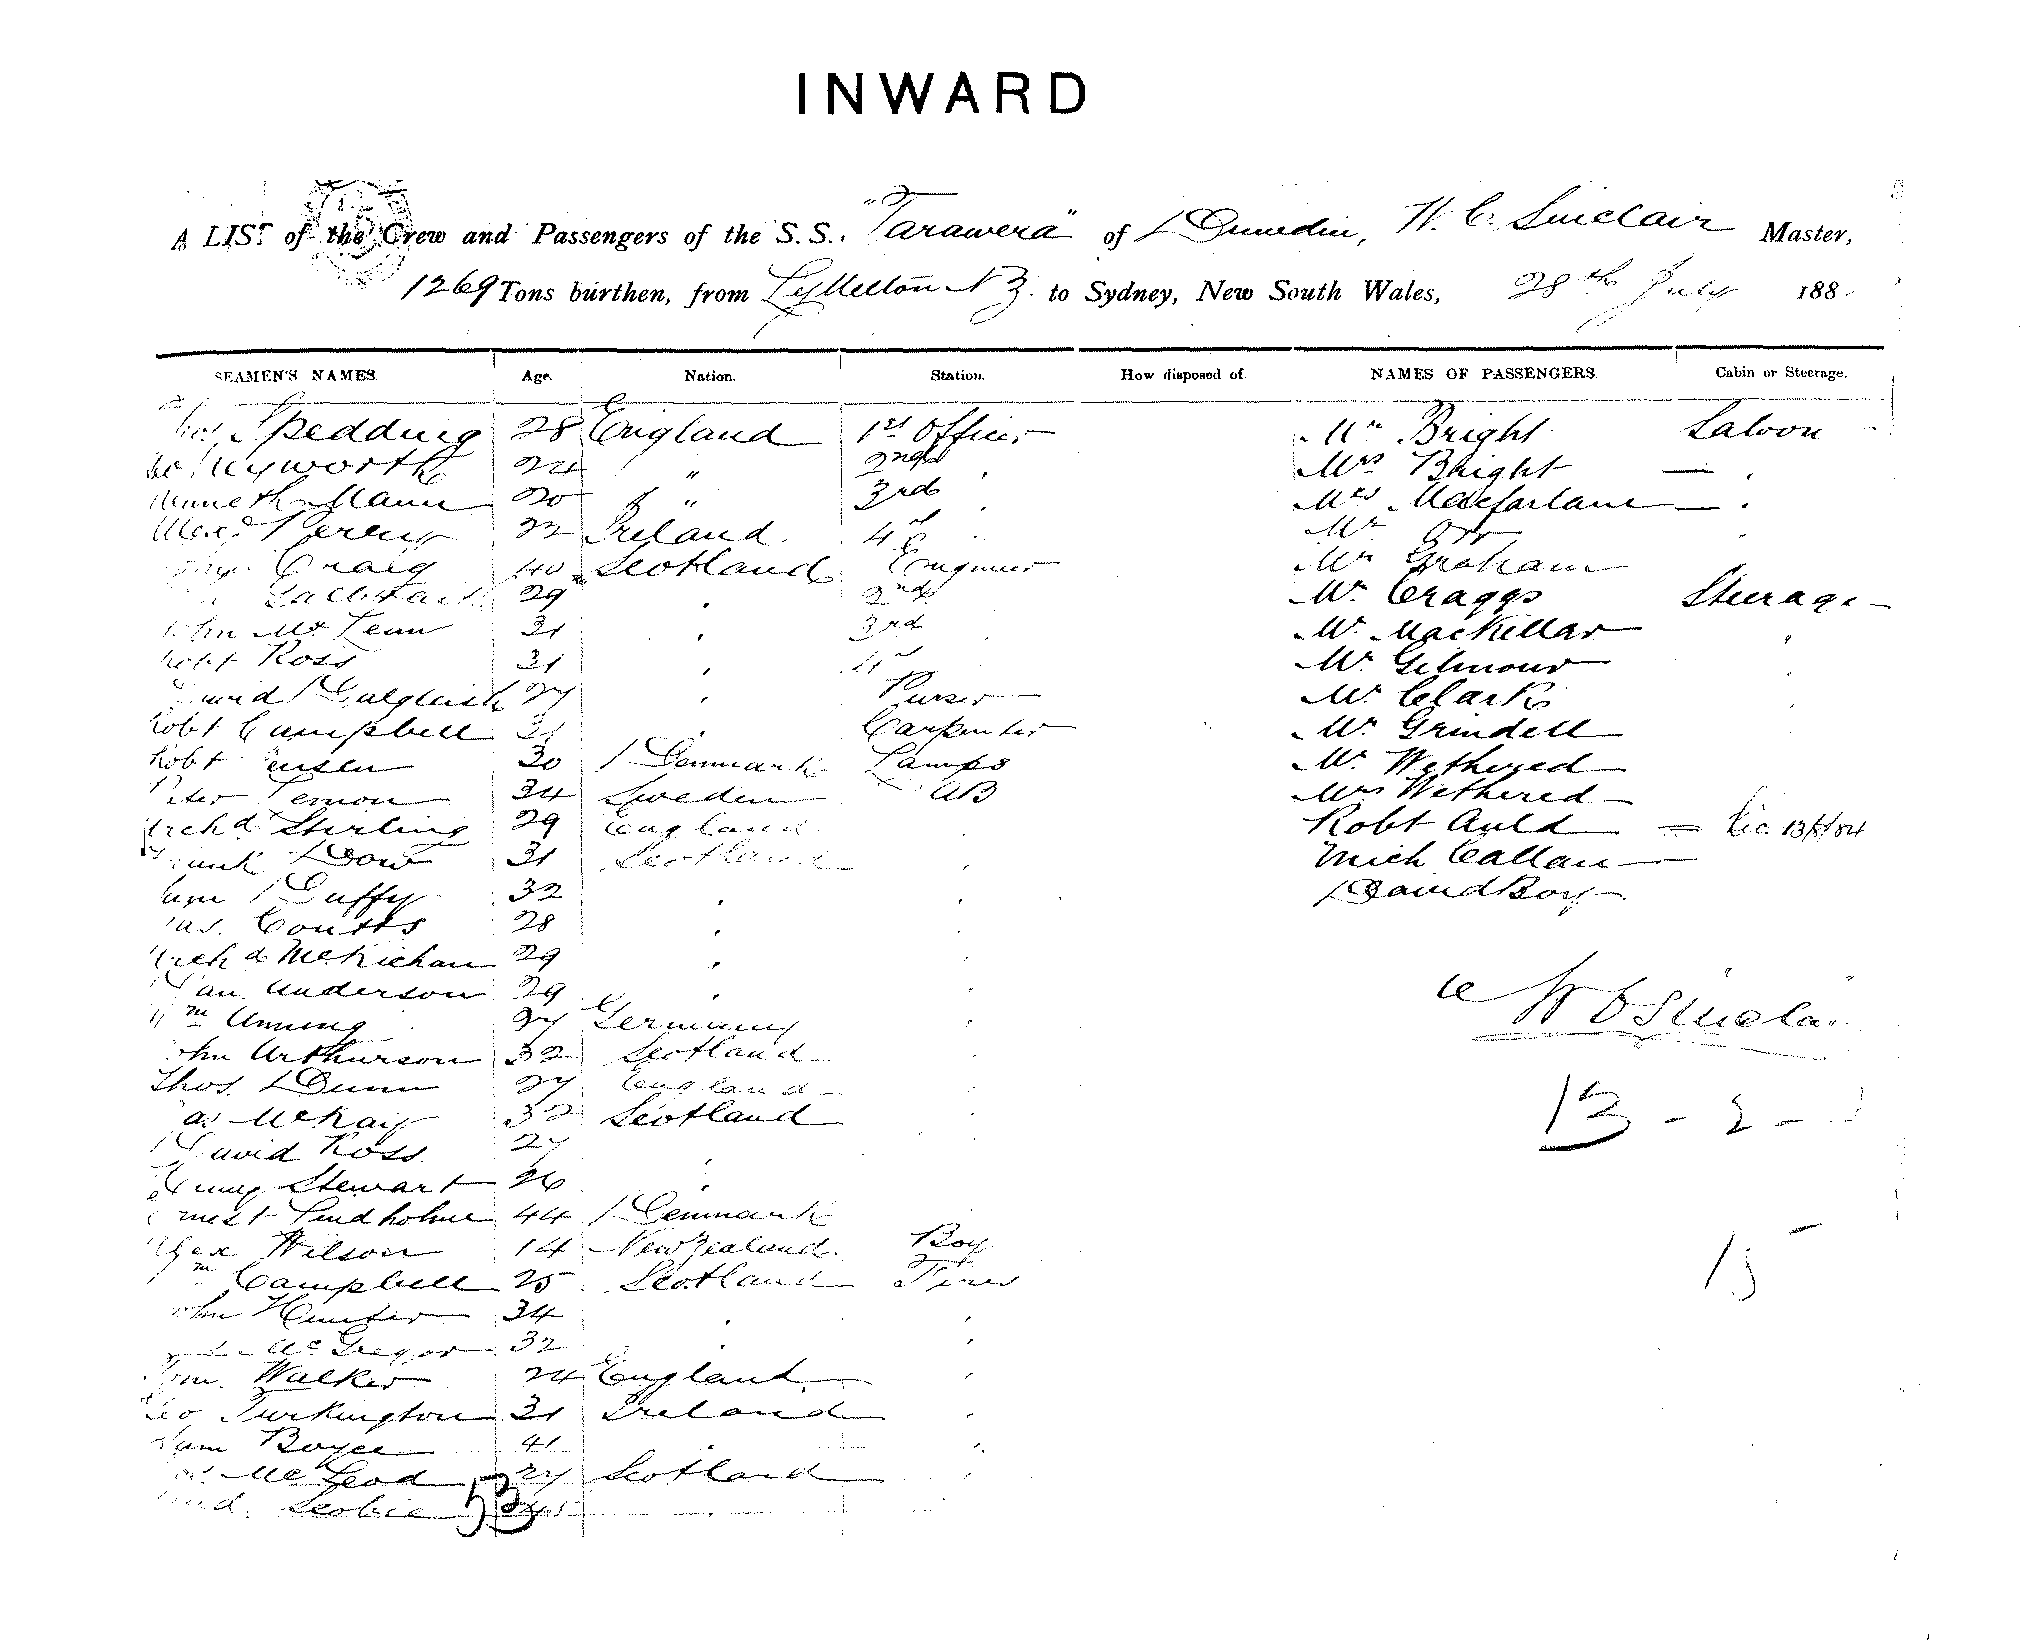 INWARD
A LIST of the Crew and Passengers of the S.S. "Tarawera" of Dunedin, W. C. Sinclair Master,
1269 Tons burthen, from Lyttelton N Z. to Sydney, New South Wales, 28th July 188
SEAMEN'S NAMES. Age. Nation. Station. How disposed of. NAMES OF PASSENGERS. Cabin or Steerage.
Spedding 28 England 1st Officer Mr Bright Saloon
24 " 2nd Mrs Bright — "
Mann 20 " 3rd Mrs Macfarlane — "
22 Ireland 4th Mr Orr "
Craig 40 Scotland Engineer Mr Graham
29 " 2nd Mr Craggs Steerage
John McLean 31 " 3rd Mr MacKellar "
Robt Ross 31 " 4th Mr Gilmour "
David Dalgleish 27 " Purser Mr Clark "
Robt Campbell 31 " Carpenter Mr Grindell
Robt Jensen 30 Denmark Lamps Mr Wethered
Peter Lemon 34 Sweden AB Mrs Wethered
Archd Stirling 29 England Robt Auld
Frank Dow 31 Scotland " Mich Callan
Duffy 32 " " David Boy
Jas. Coutts 28 " "
Archd McKichan 29 " "
Dan Anderson 29 " " W C Sinclair
Wm 27 Germany "
John Arthurson 32 Scotland "
Thos. Dunn 27 England "
Jas McKay 32 Scotland " 13 - 2 -
David Ross 27 "
Stewart 26 "
Ernest Lindholme 44 Denmark
Alex Wilson 14 New Zealand Boy
Wm Campbell 25 Scotland Fires 15
John Hunter 34 " "
McGregor 32 " "
Walker 24 England "
Geo Turkington 31 Ireland "
Sam Boyce 41 " "
McLeod 27 Scotland "
53